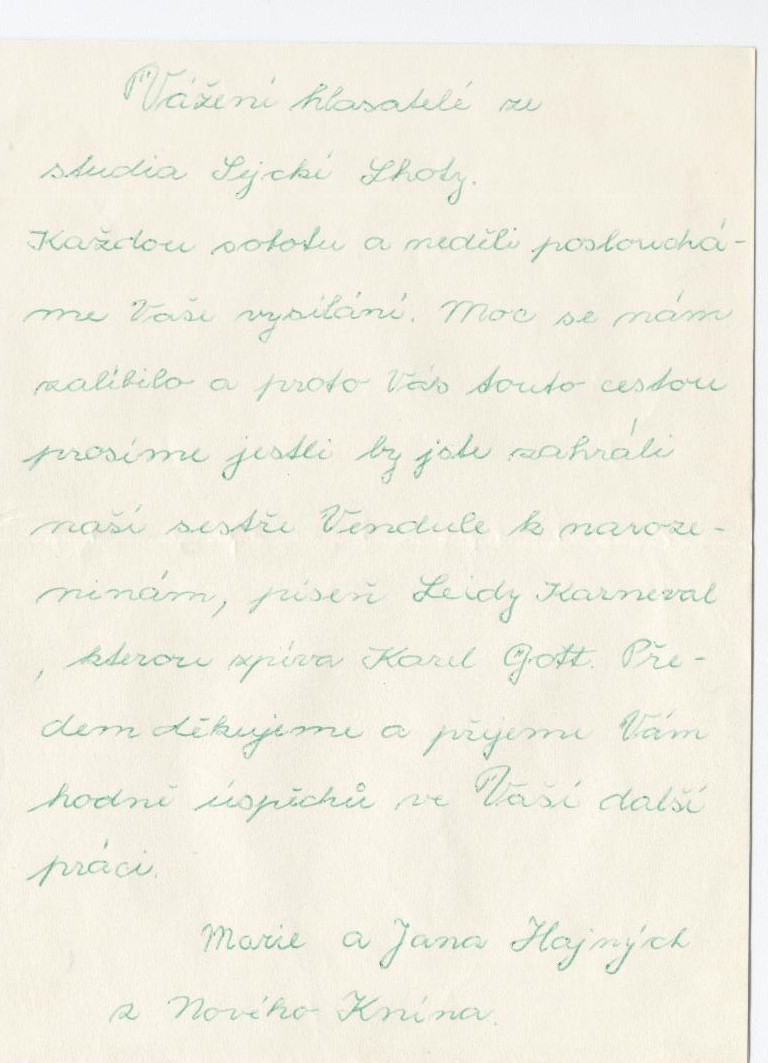 Vážení hlasatelé ze
studia Sejcké Lhoty.
Každou sobotu a neděli poslouchá-
me Vaše vysílání. Moc se nám
zalíbilo a proto Vás touto cestou
prosíme jestli by jste zahráli
naší sestře Vendule k naroze-
ninám, píseň Leidy Karneval
, kterou zpívá Karel Gott. Pře-
dem děkujeme a přejeme Vám
hodně úspěchů ve Vaší další
práci.
Marie a Jana Hajných
z Nového Knína.